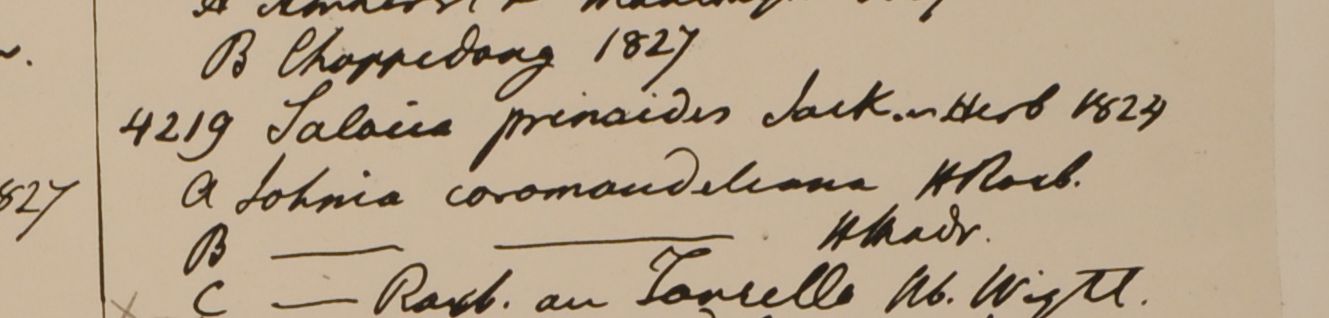 B Choppedong 1827
827
4219 Salacia prinoides Jack in Herb 1824
a Johnia coromandeliana HRoxb.
B —— —— HMadr.
C — Roxb. an Tonsella Hb. Wight.